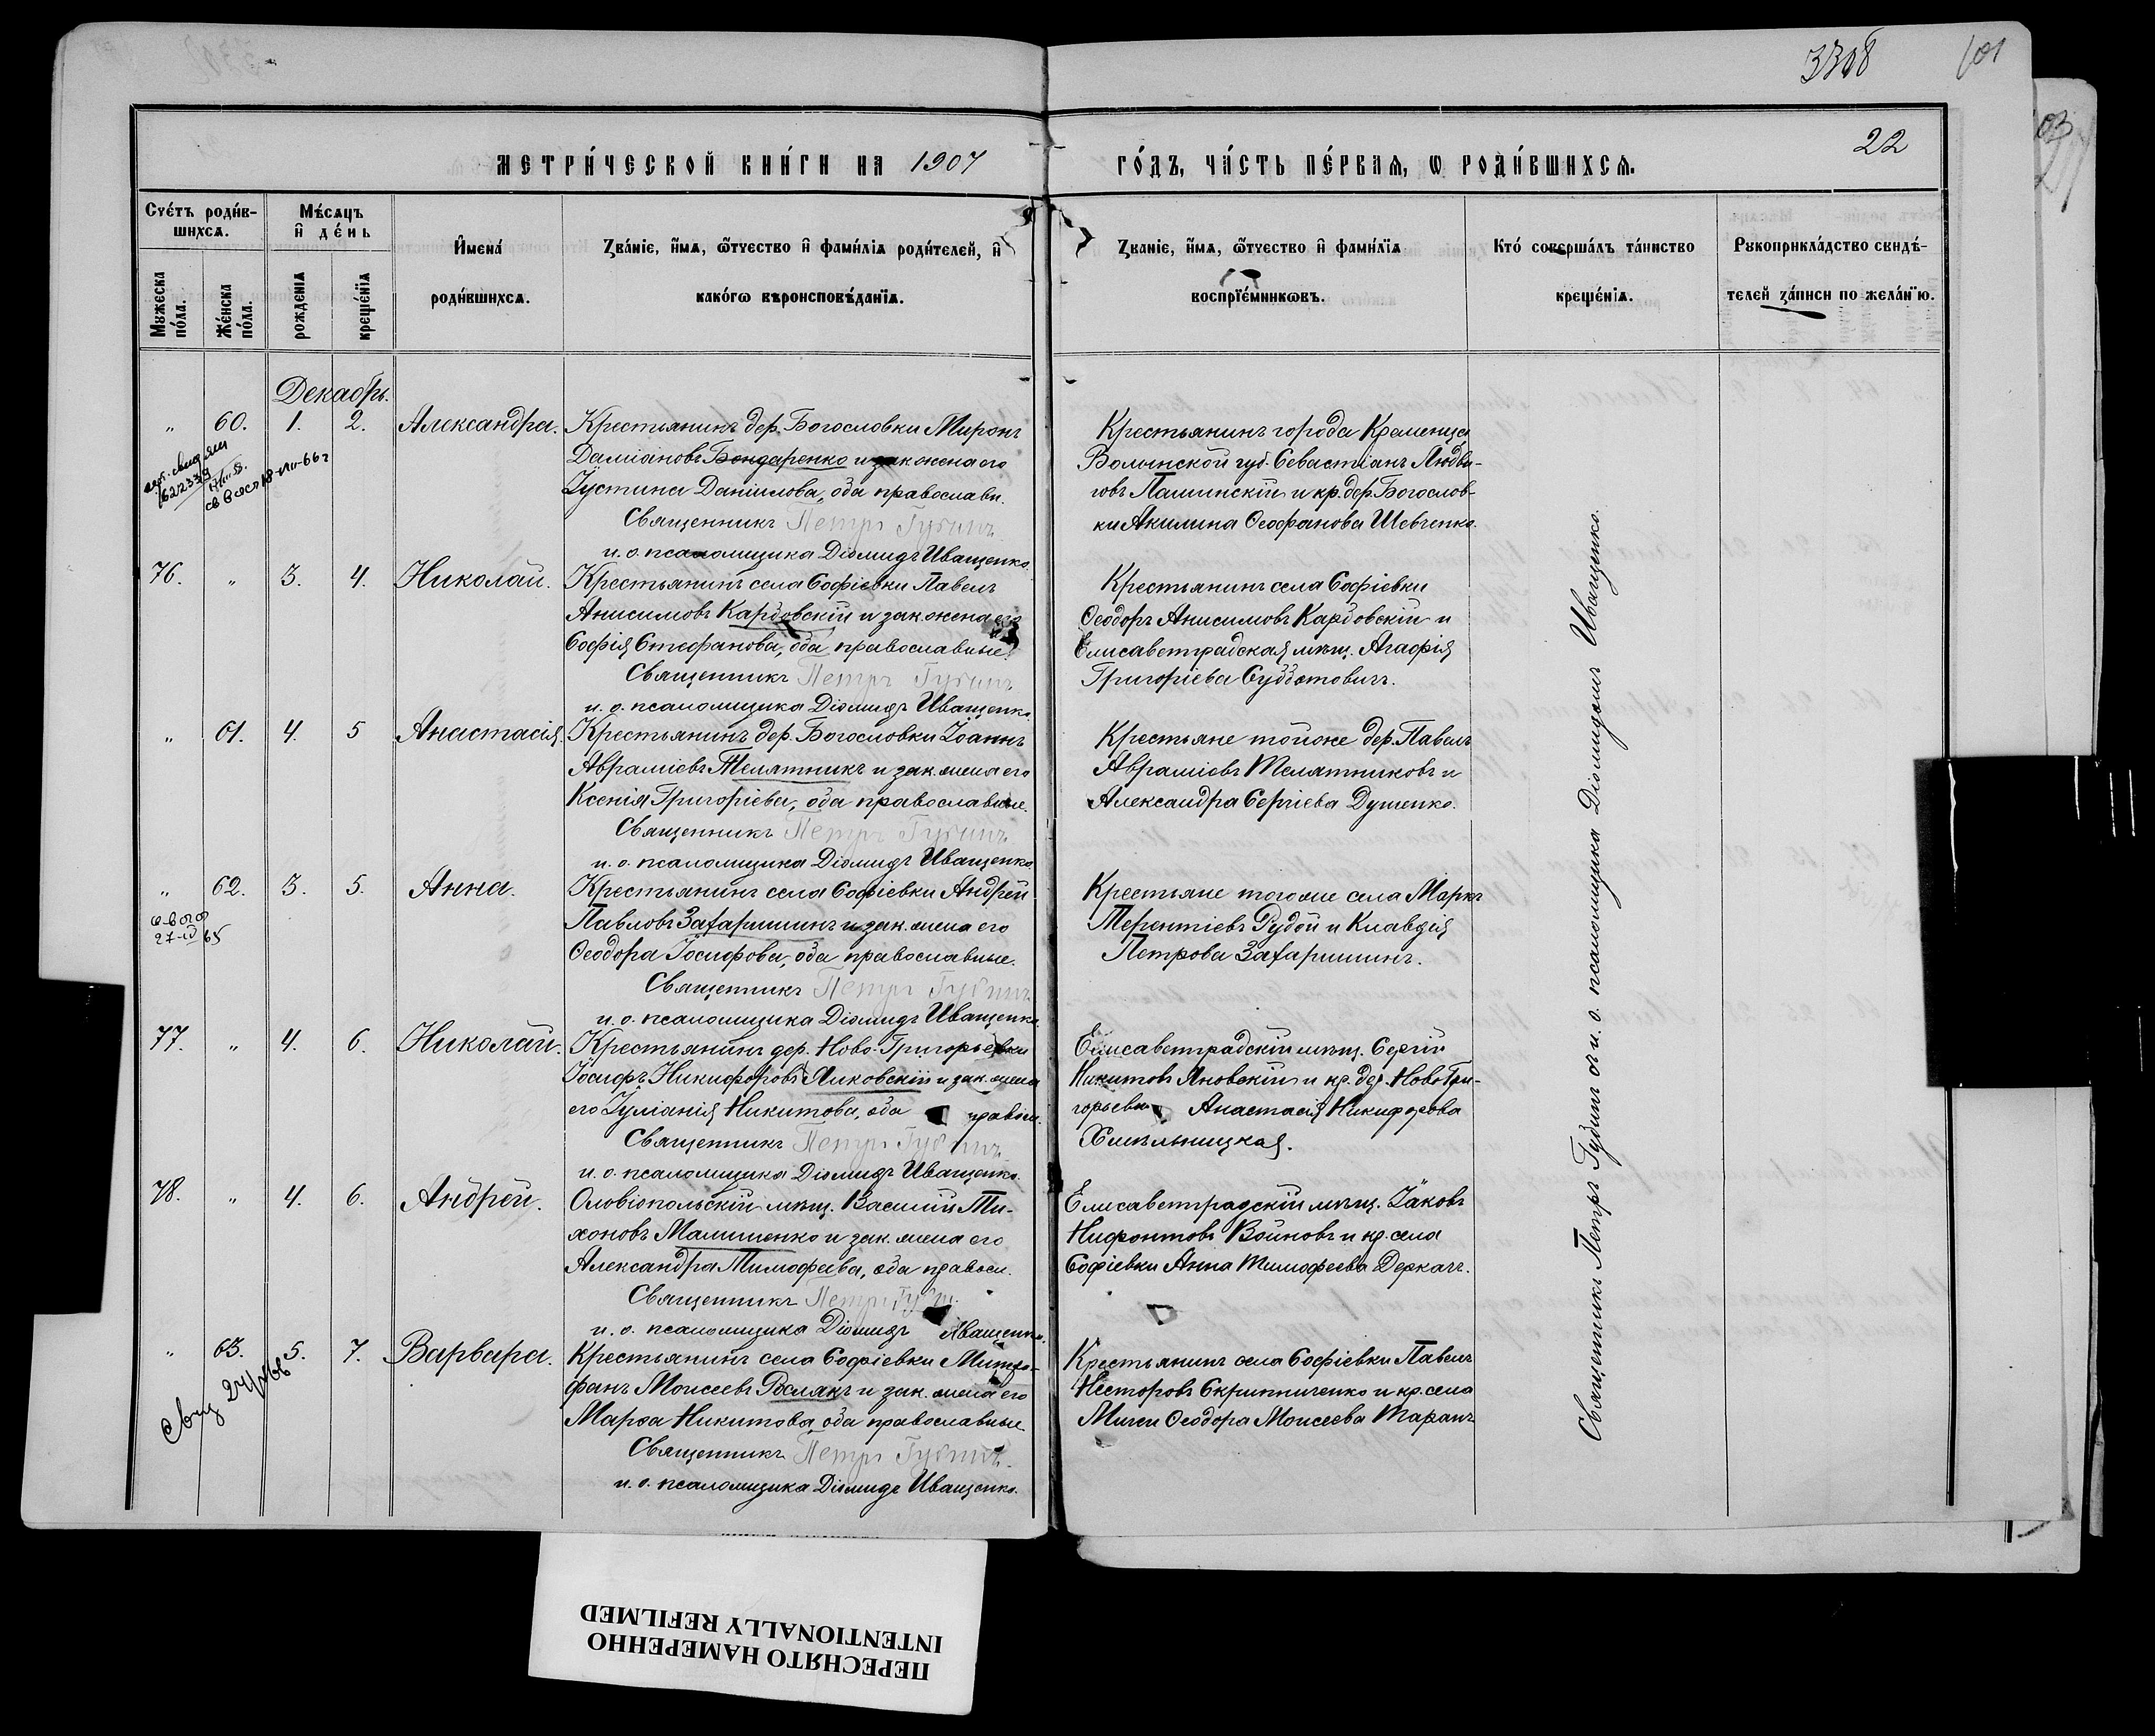 3308
101
22
МЕТРИ́ЧЕСКОЙ КНИ́ГИ НА 1907 ГО́ДЪ, ЧА́СТЬ ПЕ́РВАѦ, Ѡ РОДИ́ВШИХСѦ.
Сче́тъ роди́в-
шихсѧ.
Мꙋжеска по́ла.
Же́нска по́ла.
Мѣ́сѧцъ
и҆ де́нь
рожденїѧ
креще́нїѧ
И҆мена́
роди́вшихсѧ.
Зва́нїе, и҆́мѧ, ѻ҆́тчество и҆ фами́лїѧ роди́телей, и҆
како́гѡ вѣроисповѣ́данїѧ.
Зва́нїе, и҆́мѧ, ѻ҆́тчество и҆ фами́лїѧ
воспрїе́мникѡвъ.
Кто́ соверша́лъ та́инство
креще́нїѧ.
Рꙋкоприкла́дство свидѣ́-
телей за́писи по жела́нїю.
Декабрь.
„ 60. 1. 2. Александра.
Крестьянинъ дер. Богословки Миронъ
Даміановъ Бондаренко и зак жена его
Іустина Даніилова, оба православн.
Священникъ Петръ Губинъ
и. о. псаломщика Діомидъ Иващенко.
Крестьянинъ города Кременца
Волынской губ. Севастіанъ Людви-
говъ Пашинскій и кр. дер. Богослов-
ки Акилина Ѳеофанова Шевченко.
76. „ 3. 4. Николай.
Крестьянинъ села Софіевки Павелъ
Анисимовъ Кардовскій и зак. жена его
Софія Стефанова, оба православные.
Священникъ Петръ Губинъ
и. о. псаломщика Діомидъ Иващенко.
Крестьянинъ села Софіевки
Ѳеодоръ Анисимовъ Кардовскій и
Елисаветградская мѣщ. Агафія
Григоріева Субботовичъ.
„ 61. 4. 5 Анастасія.
Крестьянинъ дер. Богословки Іоаннъ
Авраміевъ Телятникъ и зак. жена его
Ксенія Григоріева, оба православные.
Священникъ Петръ Губинъ
и. о. псаломщика Діомидъ Иващенко
Крестьяне тойже дер. Павелъ
Авраміевъ Телятниковъ и
Александра Сергіева Душенко.
„ 62. 3. 5. Анна.
Крестьянинъ села Софіевки Андрей
Павловъ Захаришинъ и зак. жена его
Ѳеодора Іосифова, оба православные.
Священникъ Петръ Губинъ
и. о. псаломщика Діомидъ Иващенко.
Крестьяне тогоже села Маркъ
Терентіевъ Рудой и Клавдія
Петрова Захаришинъ.
77. „ 4. 6. Николай.
Крестьянинъ дер. Ново-Григорьевки
Іосифъ Никифоровъ Яиковскій и зак. жена
его Іуліанія Никитова, оба правосл.
Священникъ Петръ Губинъ
и. о. псаломщика Діомидъ Иващенко.
Елисаветградскій мѣщ. Сергій
Никитовъ Яновскій и кр. дер. Ново Гри-
горьевки Анастасія Никифорова
Хмѣльницкая.
78. „ 4. 6. Андрей.
Ольвіопольскій мѣщ. Василій Ти-
хоновъ Малишенко и зак. жена его
Александра Тимофеева, оба правосл.
Священникъ Петръ Губинъ
и. о. псаломщика Діомидъ Иващенко.
Елисаветградскій мѣщ. Іаковъ
Нифонтовъ Войновъ и кр. села
Софіевки Анна Тимофеева Деркачъ.
„ 63. 5. 7. Варвара.
Свид
Крестьянинъ села Софіевки Митро-
фанъ Моисеевъ Рослякъ и зак. жена его
Марѳа Никитова, оба православные
Священникъ Петръ Губинъ
и. о. псаломщика Діомидъ Иващенко.
Крестьянинъ села Софіевки Павелъ
Несторовъ Скрипниченко и кр. села
Мигеи Ѳеодора Моисеева Таранъ
Священникъ Петръ Губинъ съ и. о. псаломщика Діомидомъ Иващенко.
ПЕРЕСНЯТО НАМЕРЕННО
INTENTIONALLY REFILMED